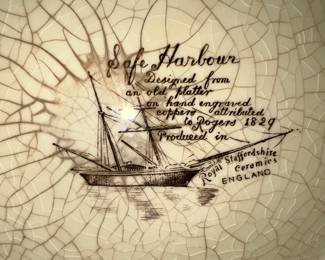 Safe Harbour
Designed from
an old platter
on hand engraved
coppers attributed
to Rogers 1829
Produced in
Royal Staffordshire
Ceramics
ENGLAND